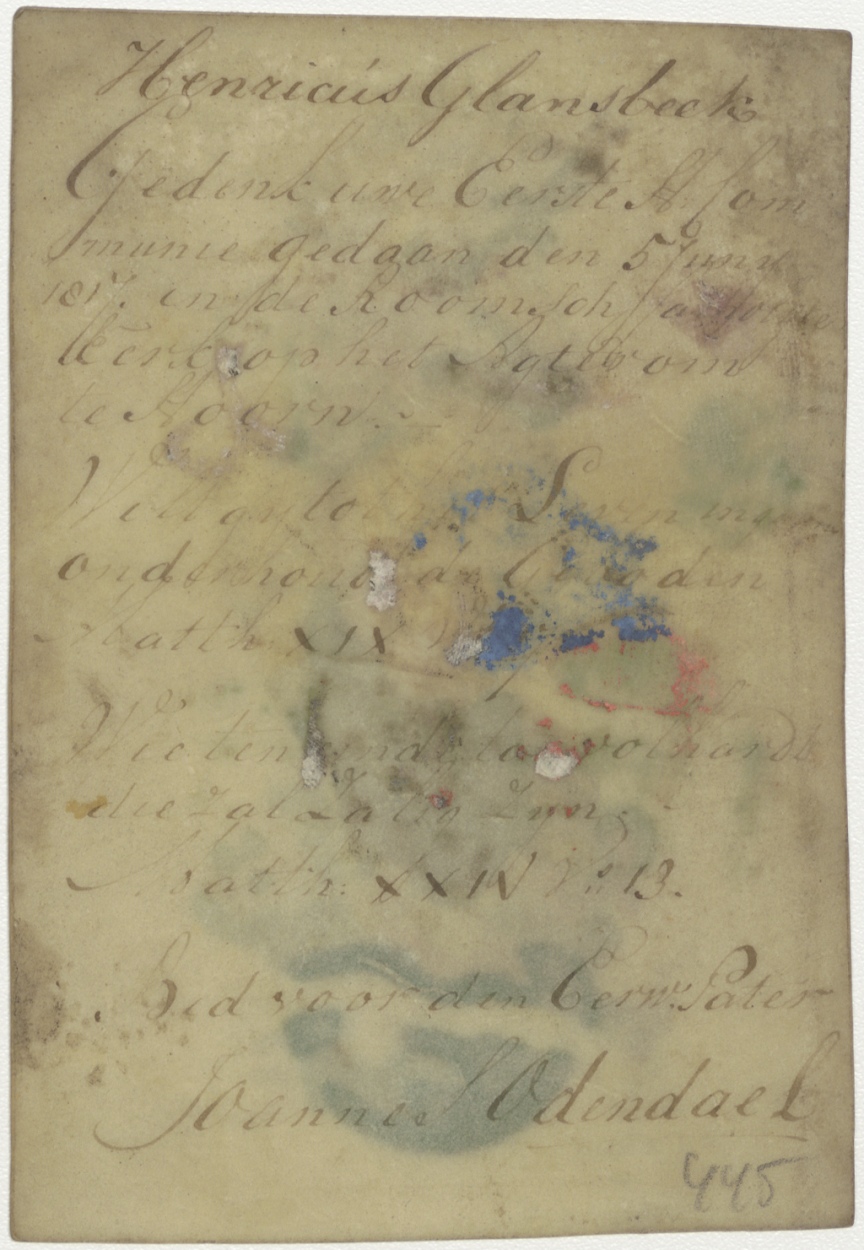 Henricús Glansbeek
Gedenk uwe Eerste H. Com
munie gedaan den 5 Juny
1817. in de Roomsch
kerk op het Agterom
te Hoorn.
Wilt gy tot het Leven ingaan
onderhoud de Geboden
Matth: XIX
Wie ten einde toe volhardt
die zal zalig zyn.
Matth: XXIV Vs: 13.
Bid voor den Eerw. Pater
Joannes Odendael
445